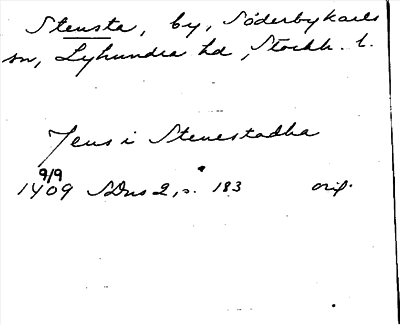 Stensta, by, Söderbykarls
sn, Lyhundra hd, Stockh. l.
Jens i Stenestadha
9/9
1409 SDns 2, s. 183 orig.